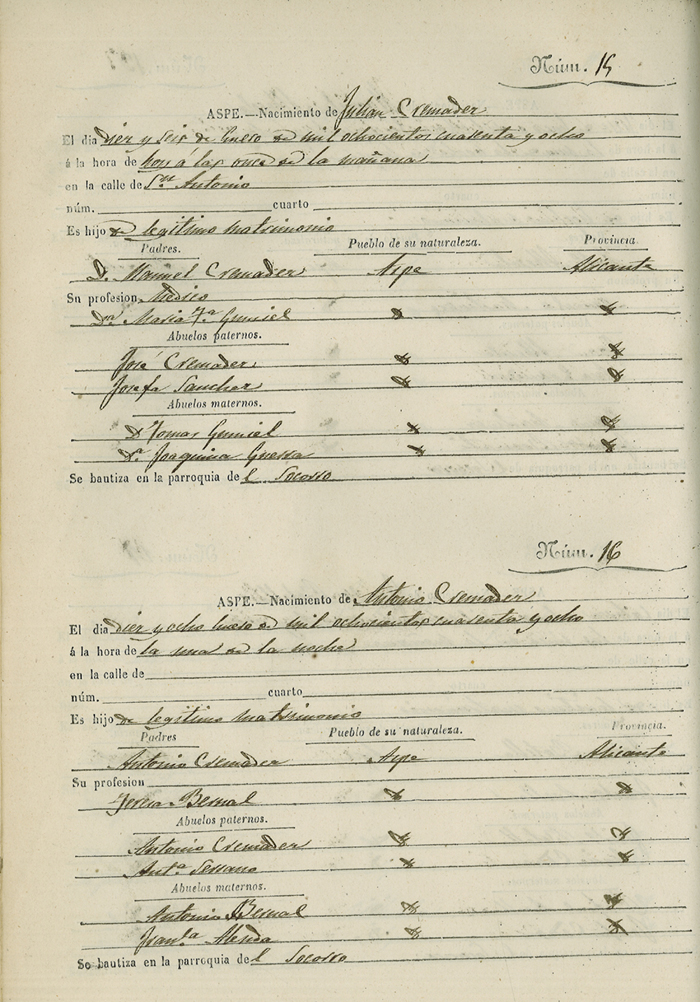 Núm. 15
ASPE.—Nacimiento de Julian Cremades
El dia diez y seis de Enero de mil ochocientos cuarenta y ocho
á la hora de hoy a las once de la mañana
en la calle de Sn Antonio
núm. cuarto
Es hijo de legitimo matrimonio
Padres. Pueblo de su naturaleza. Provincia.
D. Manuel Cremades Aspe Alicante
Su profesion Medico
Da. Maria
Abuelos paternos.
José Cremades
Josefa Sanchez
Abuelos maternos.
Dn Tomas
Da. Joaquina Guerra
Se bautiza en la parroquia de l Socorro
Núm. 16
ASPE.—Nacimiento de Antonio Cremades
El dia diez y ocho Enero de mil ochocientos cuarenta y ocho
á la hora de la una de la noche
en la calle de
núm. cuarto
Es hijo de legitimo matrimonio
Padres Pueblo de su naturaleza. Provincia.
Antonio Cremades Aspe Alicante
Su profesion
Teresa Bernal
Abuelos paternos.
Antonio Cremades
Anta. Serrano
Abuelos maternos.
Antonio Bernal
Franca.
Se bautiza en la parroquia de l Socorro